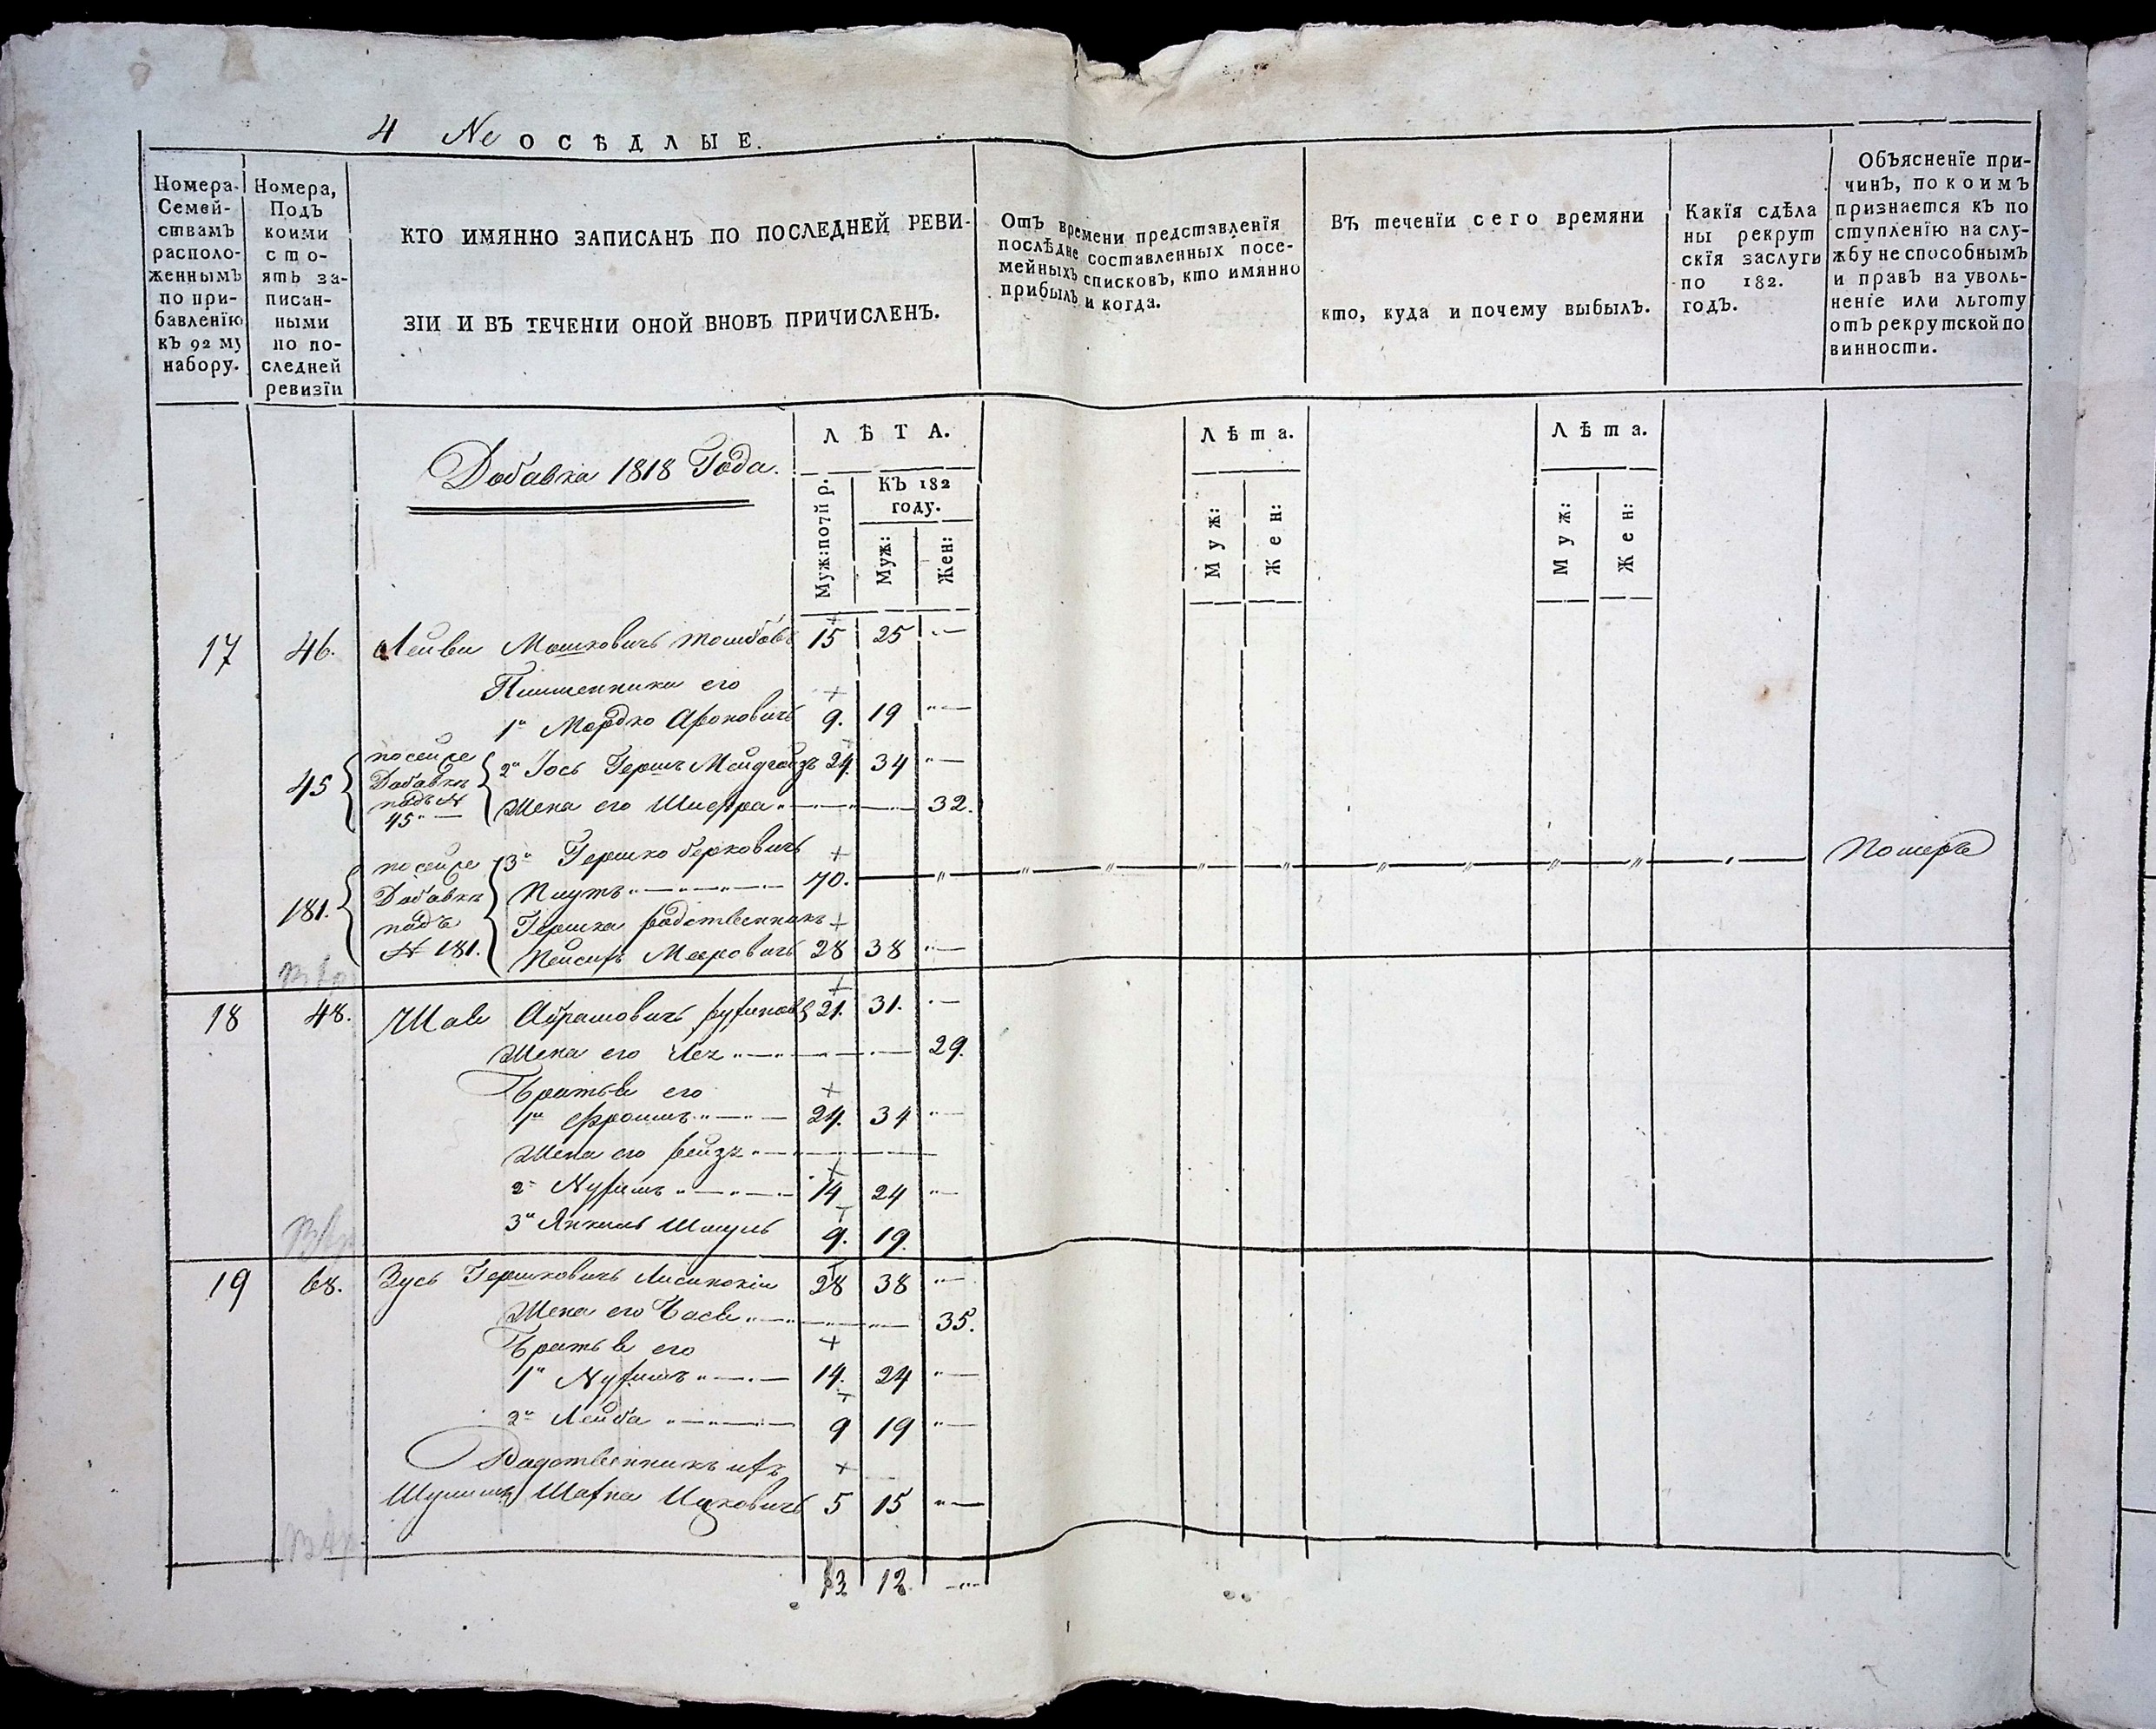 4 Не ОСѢДЛЫЕ.
Номера Семей-
ствамъ
располо-
женнымъ
по при-
бавленїю
къ 92 му
набору.
Номера,
Подъ
коими
сто-
ятъ за-
писан-
ными
по по-
следней
ревизїи
КТО ИМЯННО ЗАПИСАНЪ ПО ПОСЛЕДНЕЙ РЕВИ-
ЗІИ И ВЪ ТЕЧЕНІИ ОНОЙ ВНОВЪ ПРИЧИСЛЕНЪ.
Отъ времени представленїя
послѣдне составленныхъ посе-
мейныхъ списковъ, кто имянно
прибылъ и когда.
Въ теченїи сего времяни
кто, куда и почему выбылъ.
Какїя сдѣла
ны рекрут
скїя заслуги
по 182.
годъ.
Объясненїе при-
чинъ, по коимъ
признается къ по
ступленїю на слу-
жбу не способнымъ
и правъ на уволь-
ненїе или льготу
отъ рекрутской по
винности.
Добавка 1818 Года.
ЛѢТА.
Муж: по 7й р.
КЪ 182
году.
Муж:
Жен:
Лѣта.
Муж:
Жен:
Лѣта.
Муж:
Жен:
17 46. Мошковичъ 15 25 "—
его
1й Мордко Ароновичъ 9. 19 "—
45 по сей же
Добавкѣ
подъ №
45
2й Іось Гершъ 24. 34 "—
Жена его Шифра 32.
181. по сей же
Добавкѣ
подъ
№ 181.
3й Гершко Берковичъ
70. Померъ
Гершка родственникъ
Мееровичъ 28 38 "—
18 48. Абрамовичъ 21. 31. "—
Жена его 29.
Братья его
1й Фроимъ 24. 34 "—
Жена его Рейза
2й Нухимъ 14 24 "—
3й Янкель Шмуль 9. 19.
19 68. Зусь Гершковичъ 28 38 "—
Жена его Бася 35.
Братья его
1й Нухимъ 14. 24 "—
2й Лейба 9 19 "—
Родственникъ ихъ
Шахна Ицковичъ 5 15 "—
13 12 —"—